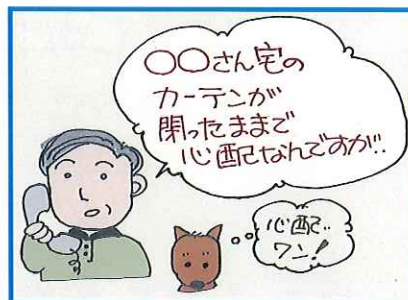 ○○さん宅の
カーテンが
閉ったままで
心配なんですが‥
心配‥
ワン!